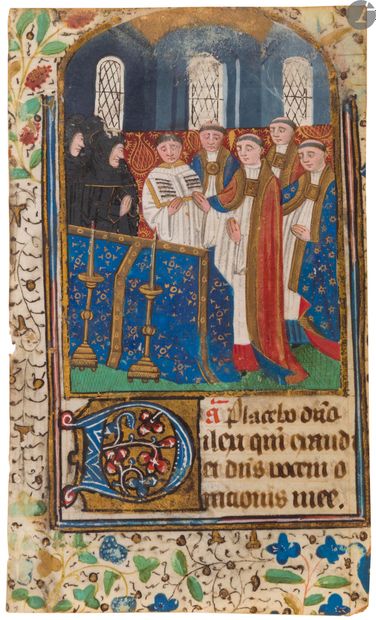 ã Placebo dño
Dilexi qm̃ exaudi
et dñs vocem o
rationis mee.